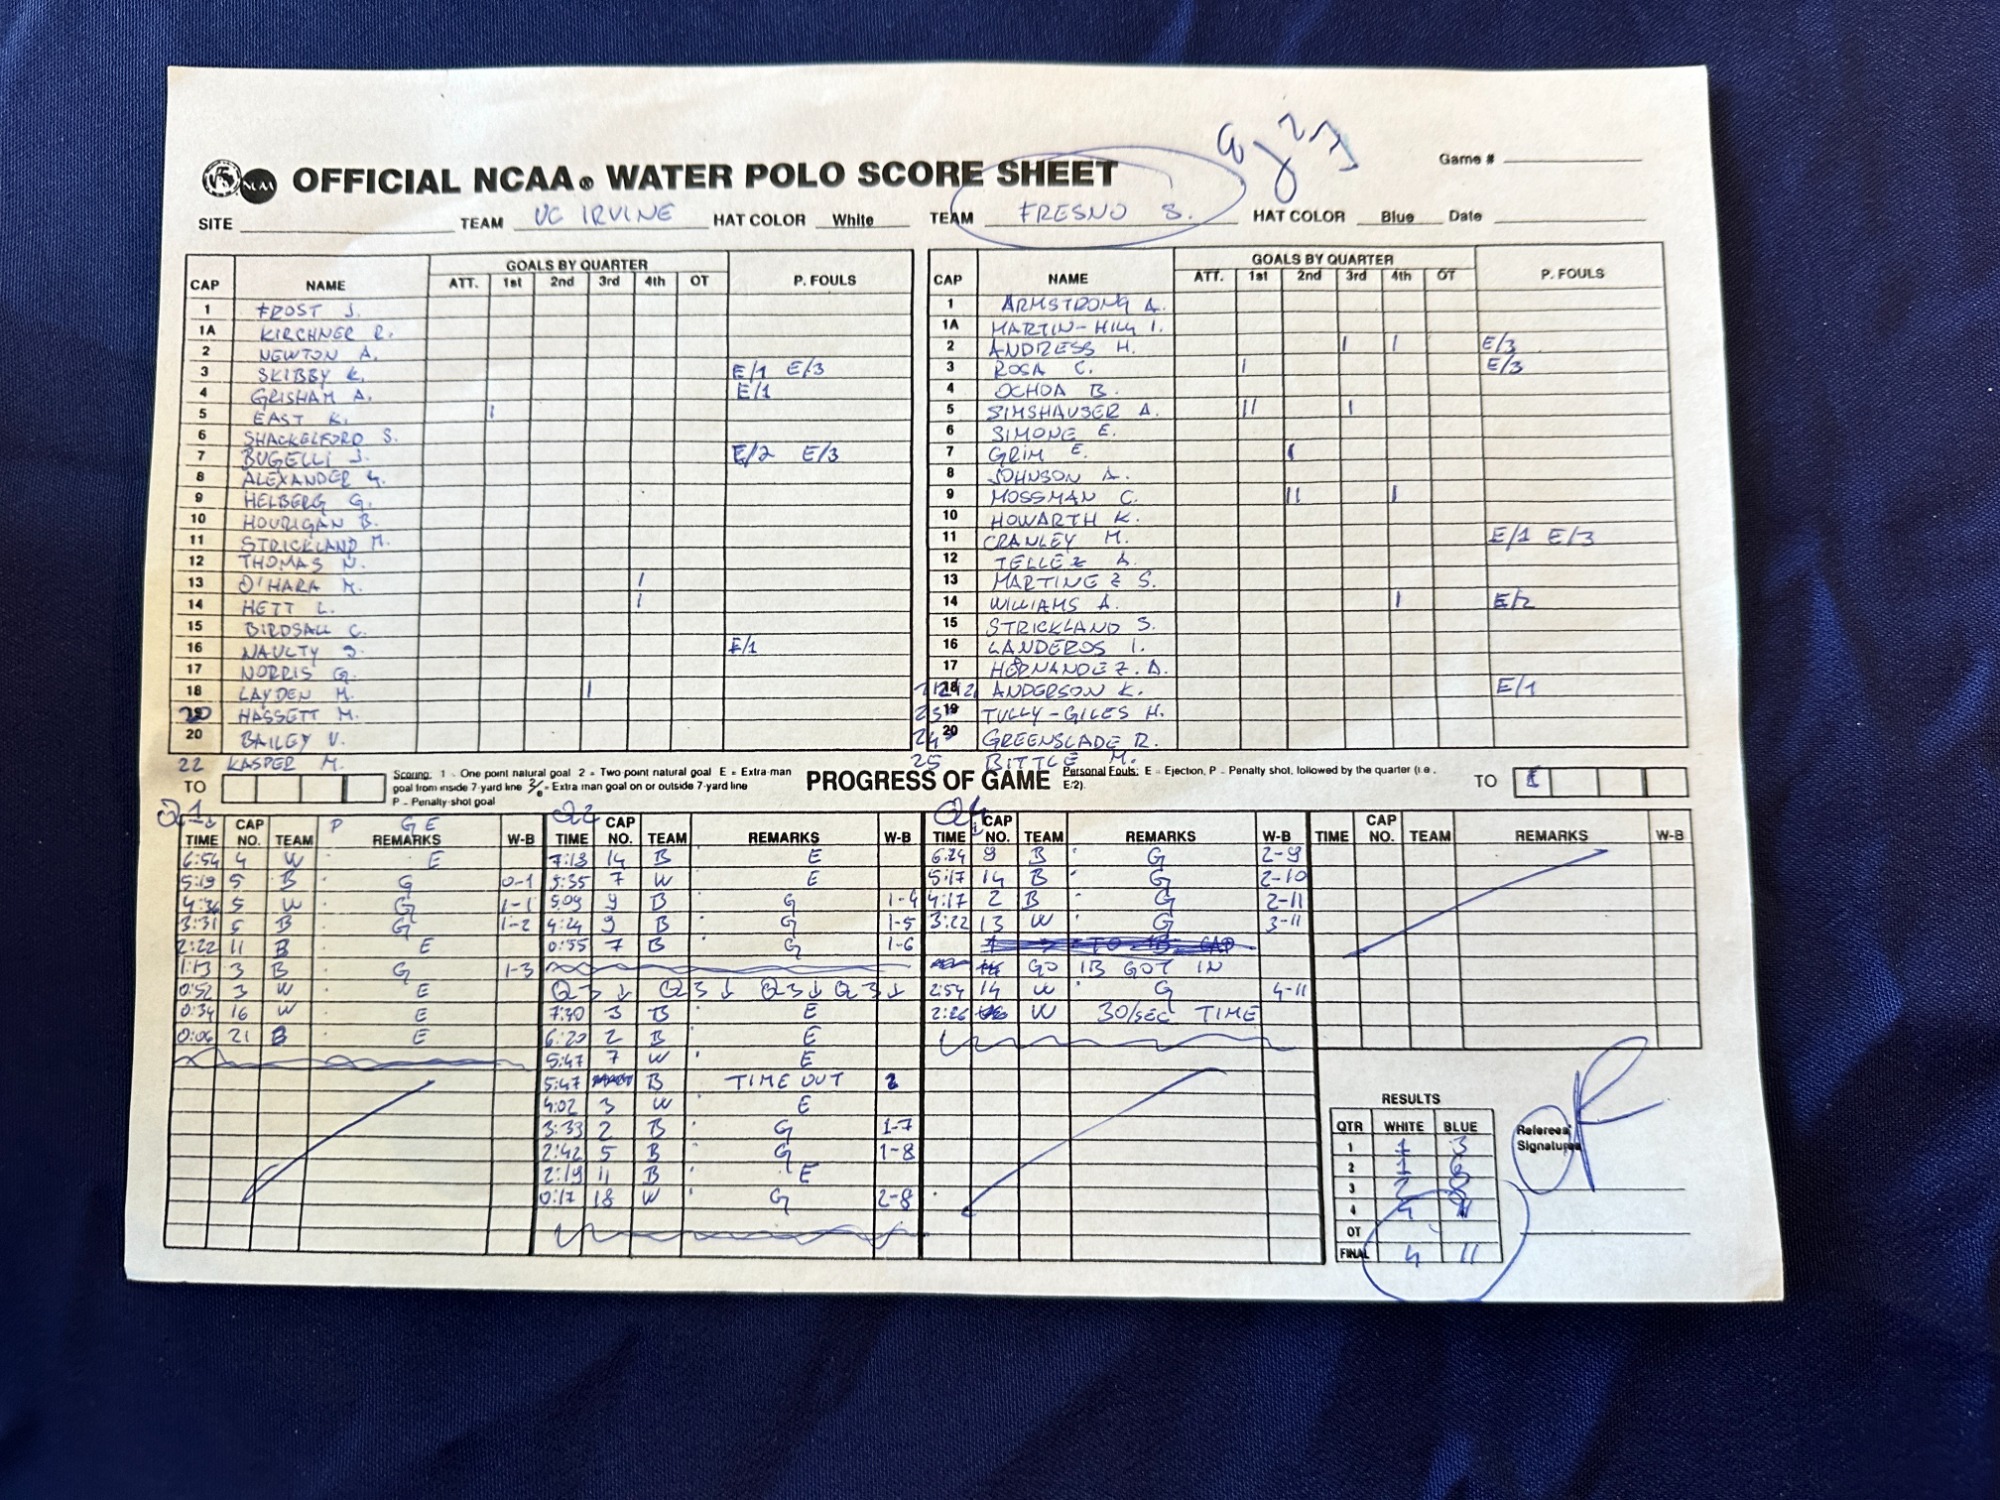 NCAA OFFICIAL NCAA® WATER POLO SCORE SHEET
Game #
SITE TEAM UC IRVINE HAT COLOR White TEAM FRESNO S. HAT COLOR Blue Date
GOALS BY QUARTER
CAP NAME ATT. 1st 2nd 3rd 4th OT P. FOULS
1 FROST J.
1A KIRCHNER R.
2 NEWTON A.
3 SKIBBY K. E/1 E/3
4 GRISHAM A. E/1
5 EAST K. I
6 SHACKELFORD S.
7 BUGELLI J. E/2 E/3
8 ALEXANDER G.
9 HELBERG G.
10 HOURIGAN B.
11 STRICKLAND M.
12 THOMAS N.
13 O'HARA M. I
14 HETT L. I
15 BIRDSALL C.
16 NAULTY S. E/1
17 NORRIS G.
18 LAYDEN M. I
HASSETT M.
20 BAILEY V.
22 KASPER M.
GOALS BY QUARTER
CAP NAME ATT. 1st 2nd 3rd 4th OT P. FOULS
1 ARMSTRONG A.
1A MARTIN-HILL I.
2 ANDRESS H. I I E/3
3 ROSA C. I E/3
4 OCHOA B.
5 SIMSHAUSER A. II I
6 SIMONE E.
7 GRIM E. I
8 JOHNSON A.
9 MOSSMAN C. II I
10 HOWARTH K.
11 CRANLEY M. E/1 E/3
12 TELLEZ A.
13 MARTINEZ S.
14 WILLIAMS A. I E/2
15 STRICKLAND S.
16 LANDEROS I.
17 HERNANDEZ. A.
ANDERSON K. E/1
19 TULLY-GILES H.
20 GREENSLADE R.
25 BITTLE M.
TO
Scoring: 1 - One point natural goal 2 = Two point natural goal E = Extra-man
goal from inside 7-yard line = Extra man goal on or outside 7-yard line
P - Penalty-shot goal
PROGRESS OF GAME
Personal Fouls: E - Ejection, P - Penalty shot, followed by the quarter (i.e.,
E/2).
TO
Q1 P G E
TIME CAP NO. TEAM REMARKS W-B
6:54 4 W E
5:19 5 B G 0-1
4:36 5 W G 1-1
3:31 5 B G 1-2
2:22 11 B E
1:13 3 B G 1-3
0:52 3 W E
0:34 16 W E
0:06 21 B E
Q2
TIME CAP NO. TEAM REMARKS W-B
7:13 14 B E
5:35 7 W E
5:09 9 B G 1-4
4:24 9 B G 1-5
0:55 7 B G 1-6
Q3 ↓ Q3 ↓ Q3 ↓ Q3 ↓
7:30 3 B E
6:20 2 B E
5:47 7 W E
5:47 B TIME OUT
4:02 3 W E
3:33 2 B G 1-7
2:42 5 B G 1-8
2:19 11 B E
0:17 18 W G 2-8
Q4
TIME CAP NO. TEAM REMARKS W-B
6:24 9 B G 2-9
5:17 14 B G 2-10
4:17 2 B G 2-11
3:22 13 W G 3-11
GO 1B GOT IN
2:54 14 W G 4-11
2:26 W 30/SEC TIME
TIME CAP NO. TEAM REMARKS W-B
RESULTS
QTR WHITE BLUE
1 1 3
2 1 6
3 2 8
4 4
OT
FINAL 4 11
Referees'
Signatures